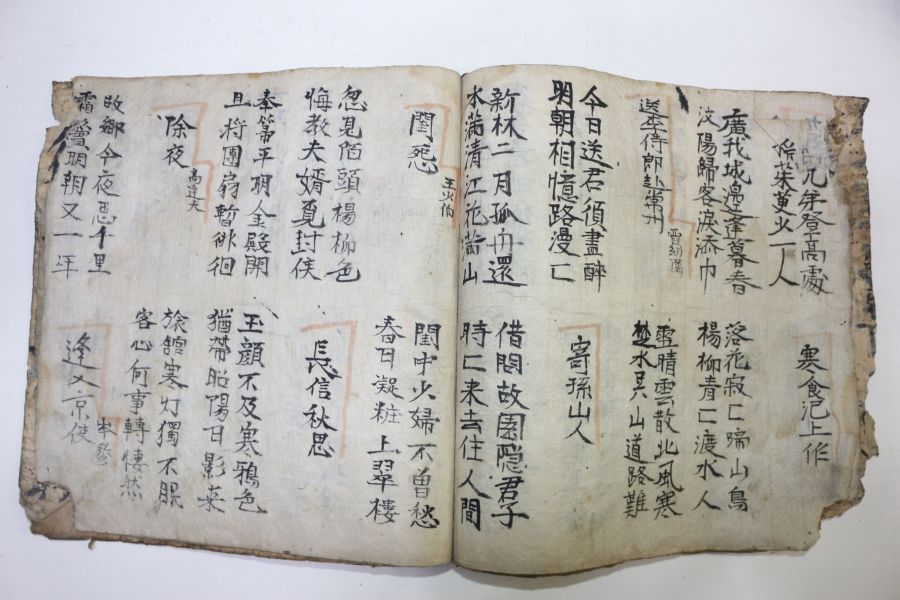 弟登高處
茱萸少一人
寒食汜上作
廣武城邊逢暮春
汶陽歸客淚添巾
落花寂匕啼山鳥
楊柳青匕渡水人
送李侍郎赴常州
賈幼隣
雪晴雲散北風寒
楚水吳山道路難
今日送君須盡醉
明朝相憶路漫匕
寄孫山人
新林二月孤舟還
水滿清江花滿山
借問故園隐君子
時匕来去住人間
閨怨
王少伯
閨中少婦不曾愁
春日凝粧上翠樓
忽見陌頭楊柳色
悔教夫婿覓封侯
長信秋思
奉箒平明金殿開
且將團扇暫徘徊
玉顏不及寒鴉色
猶帶昭陽日影来
除夜
高達夫
旅舘寒灯獨不眠
客心何事轉悽然
故鄉今夜思千里
霜鬢明朝又一年
逢入京使
岑參